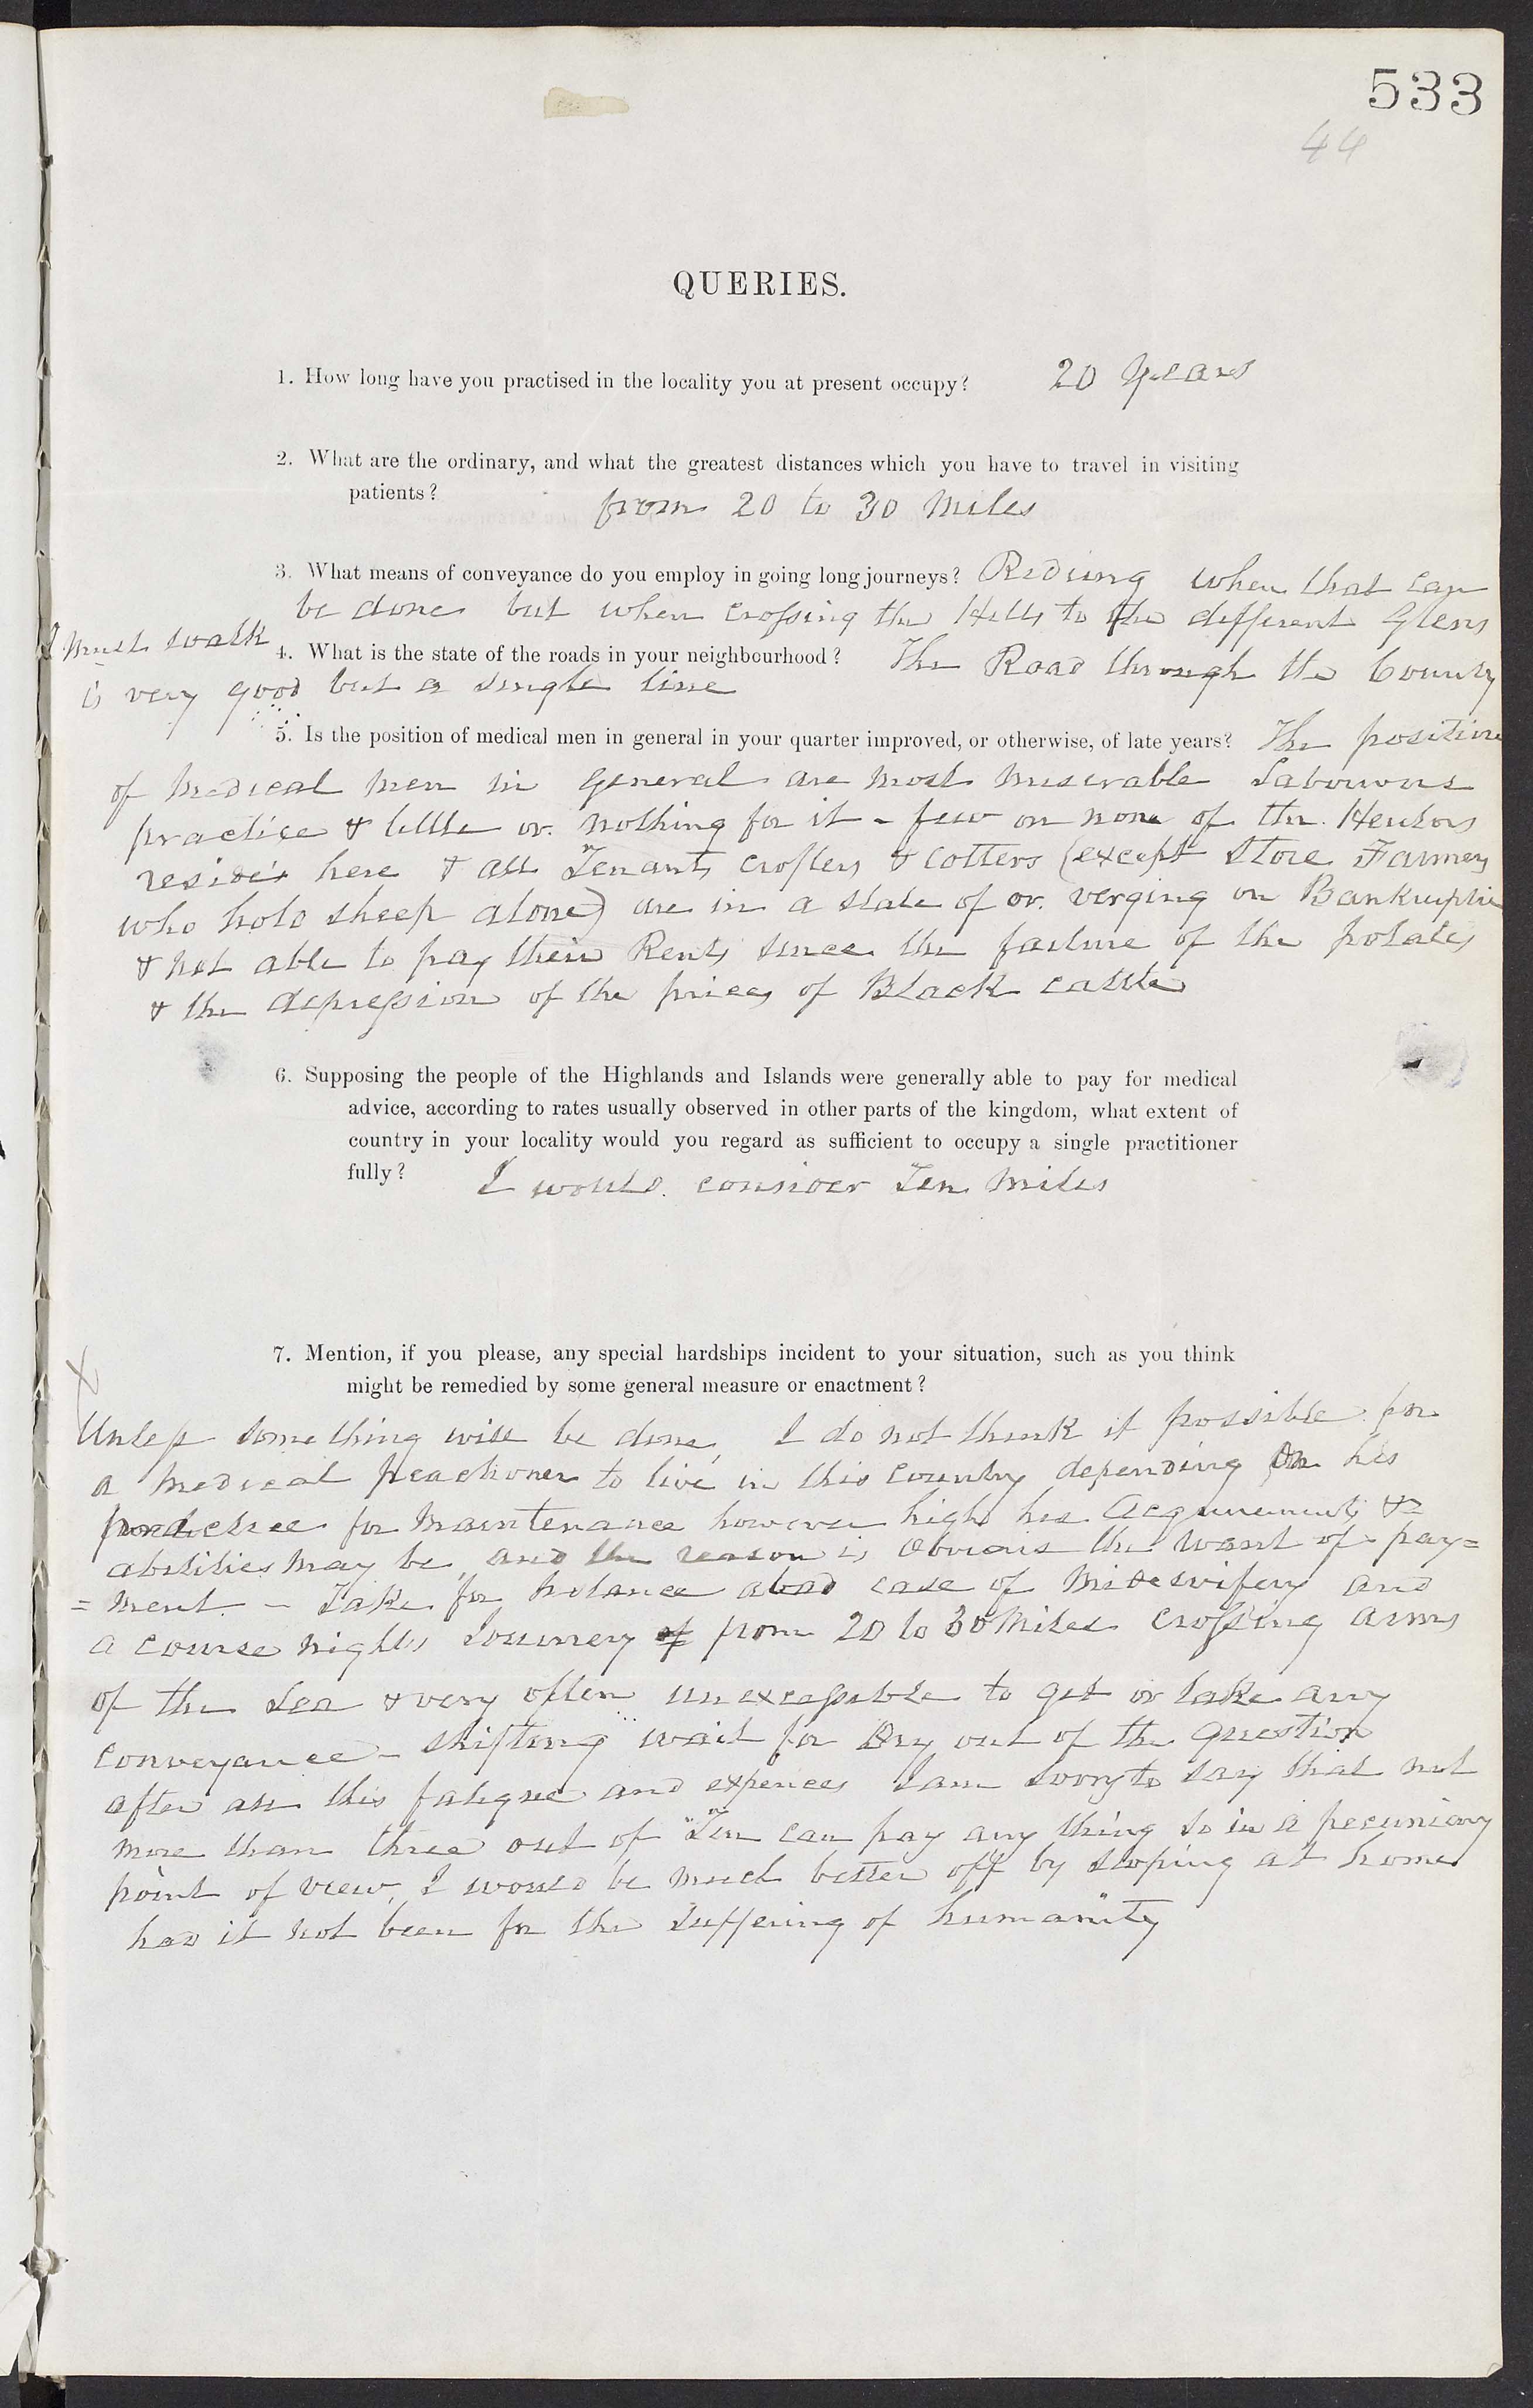 533
44
QUERIES.
1. How long have you practised in the locality you at present occupy? 20 Years
2. What are the ordinary, and what the greatest distances which you have to travel in visiting
patients? from 20 to 30 Miles
3. What means of conveyance do you employ in going long journeys? Riding when that can
be done but when crossing the Hills to the different Glens
I must walk
4. What is the state of the roads in your neighbourhood? The Road through the County
is very good but a single line
5. Is the position of medical men in general in your quarter improved, or otherwise, of late years? The position
of Medical men in general are most miserable Labourous
practice & little or nothing for it - few or none of the Heritors
resides here & all Tenants crofters & cotters (except Store Farmers
who hold sheep alone) are in a state of or verging on Bankruptcie
& not able to pay their Rents since the failure of the potates
& the depression of the prices of Black cattle
6. Supposing the people of the Highlands and Islands were generally able to pay for medical
advice, according to rates usually observed in other parts of the kingdom, what extent of
country in your locality would you regard as sufficient to occupy a single practitioner
fully? I would consider Ten Miles
7. Mention, if you please, any special hardships incident to your situation, such as you think
might be remedied by some general measure or enactment?
Unless something will be done, I do not think it possible for
a medical practioner to live in this Country depending on his
practice for Maintenance however high his Acquirements &
abilities may be, and the reason is Obvious the want of pay=
=ment - Take for instance a bad case of Midewifery and
a course nights Journey of from 20 to 30 Miles crossing arms
of the Sea & very often unexcessible to get or take any
conveyance - shifting wait for Dry out of the question
after all this fatigue and expences I am sorry to say that not
more than three out of Ten can pay any thing so in a pecuniary
point of view, I would be much better off by stoping at home
had it not been for the suffering of humanity